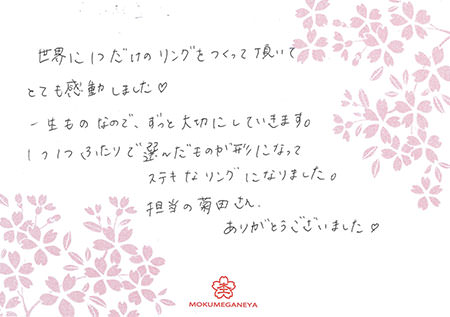 世界に1つだけのリングをつくって頂いて
とても感動しました♡
一生ものなので、ずっと大切にしていきます。
1つ1つふたりで選んだものが形になって
ステキなリングになりました。
担当の菊田さん、
ありがとうございました♡
MOKUMEGANEYA